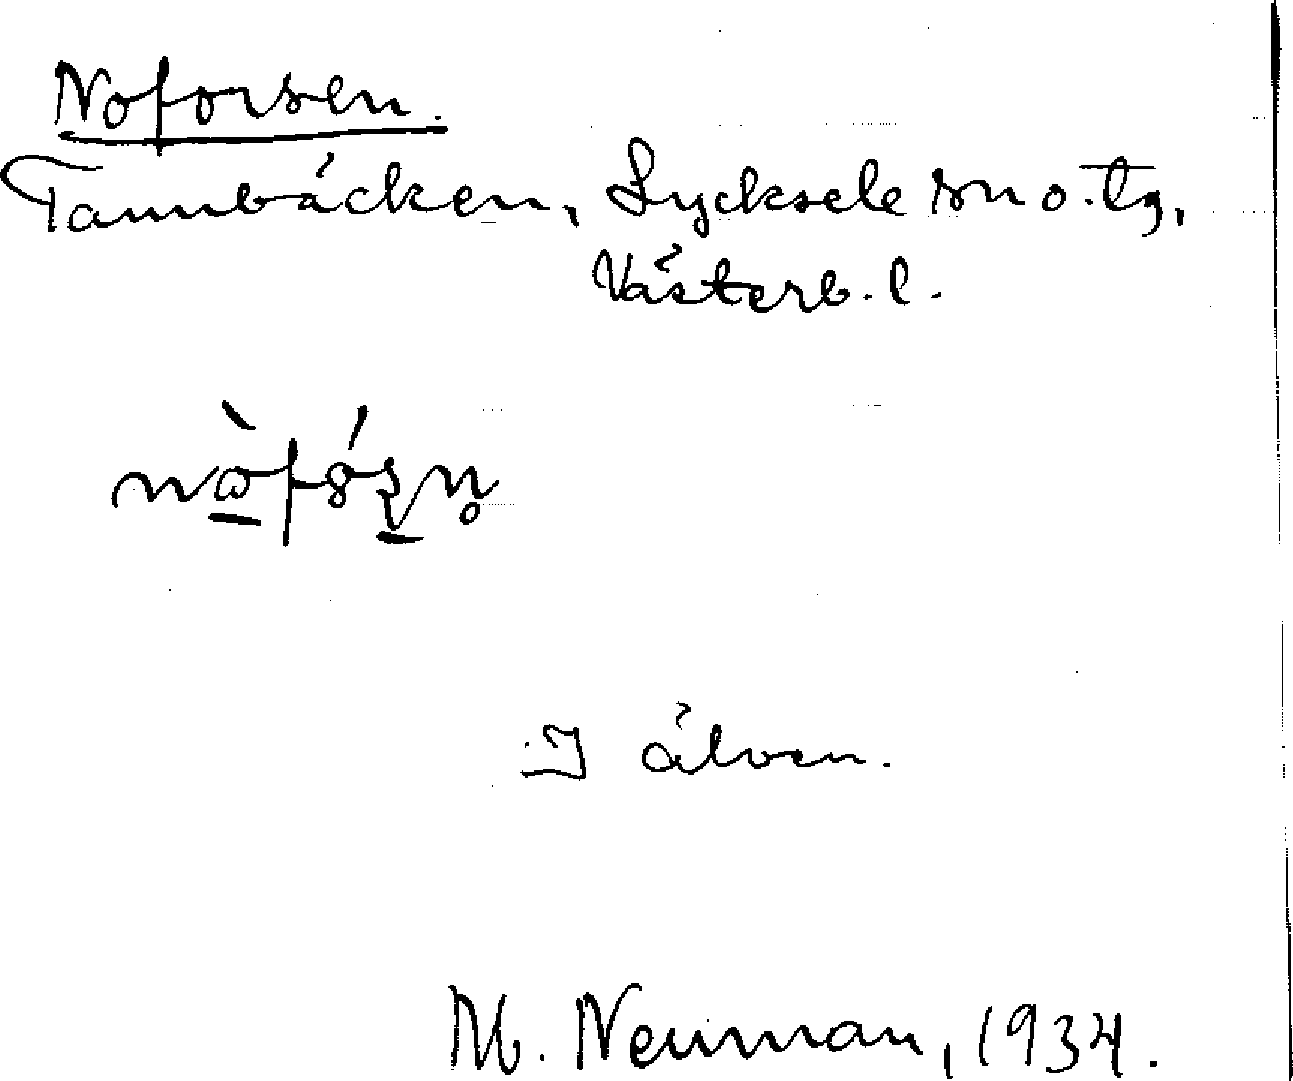 Noforsen.
Tannbäcken, Lycksele sn o. tg,
Västerb. l.
I älven.
M. Neuman, 1934.